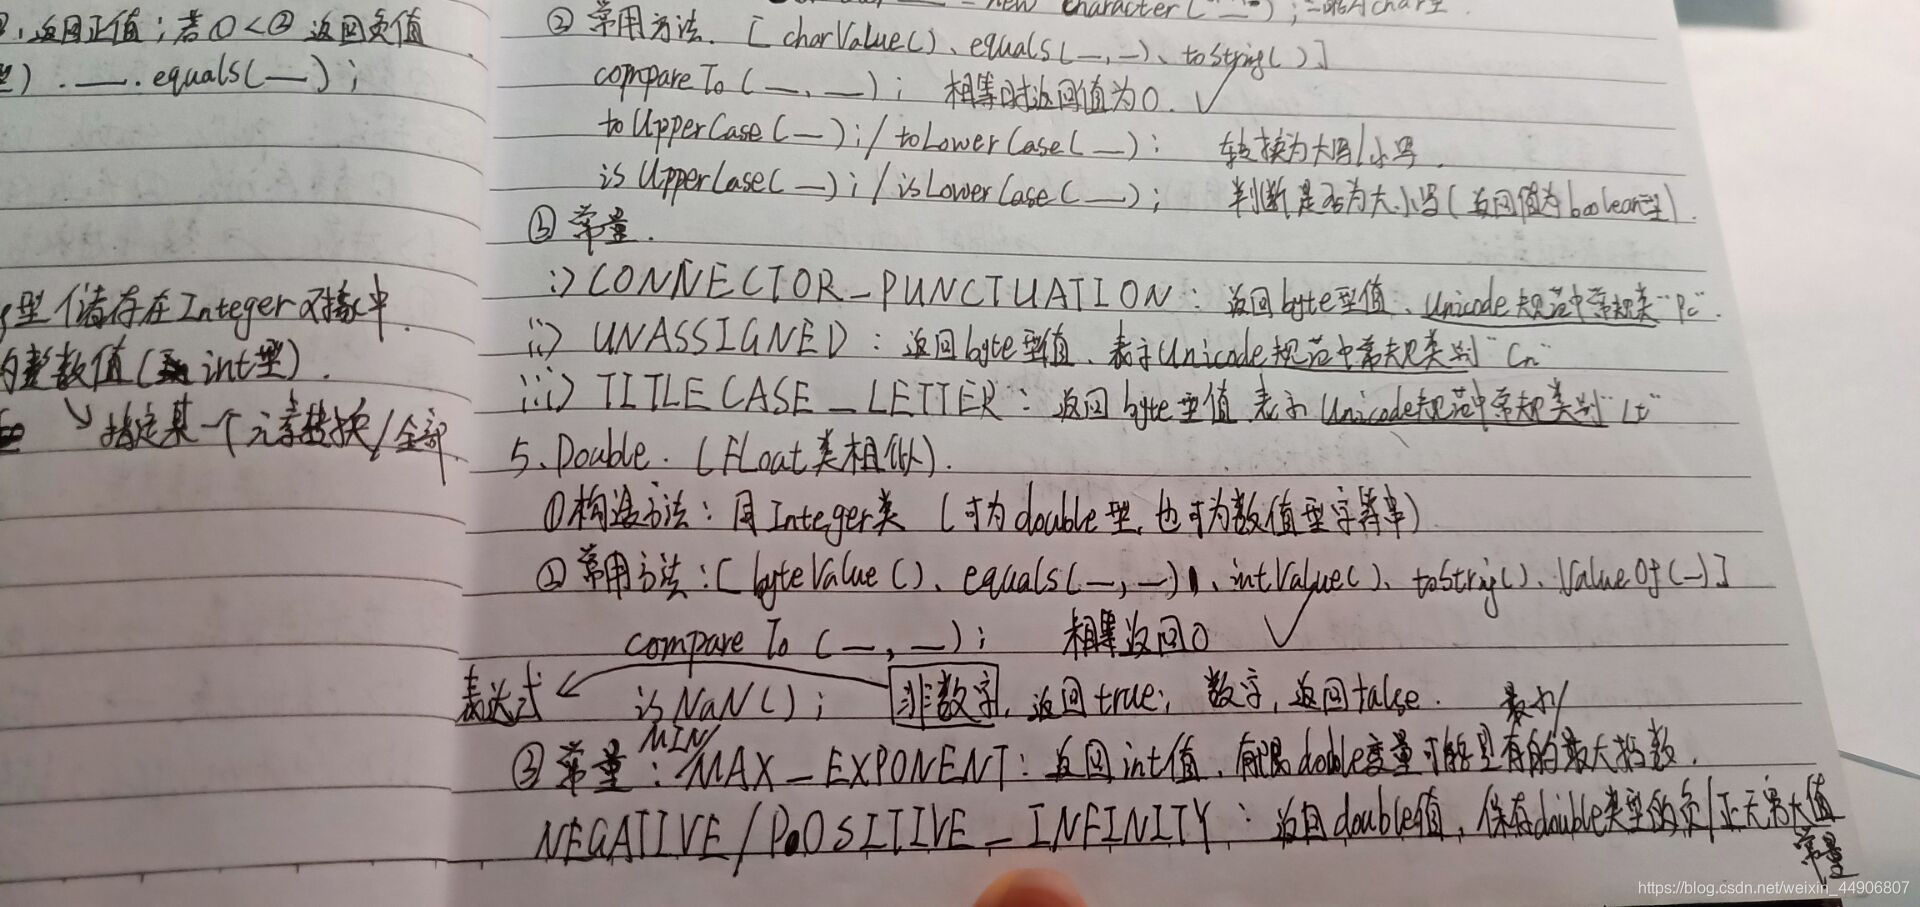 ②,返回正值;若①<②返回负值
型).__.equals(__);
型储存在Integer对象中.
的整数值(int型).
↘指定某一个元素转换/全部
new Character("__");
②常用方法.[charValue()、equals(__,__)、toString()]
compareTo(__,__); 相等时返回值为0.✓
toUpperCase(__);/toLowerCase(__); 转换为大写/小写.
isUpperCase(__);/isLowerCase(__); 判断是否为大小写(返回值为boolean型).
③常量.
i>CONNECTOR_PUNCTUATION:返回byte型值、Unicode规范中常规类"Pc".
ii>UNASSIGNED:返回byte型值、表示Unicode规范中常规类别"Cn"
iii>TITLECASE_LETTER:返回byte型值 表示Unicode规范中常规类别"Lt"
5、Double.(Float类相似).
①构造方法:同Integer类(可为double型,也可为数值型字符串)
②常用方法:[byteValue()、equals(__,__)、intValue()、toString()、ValueOf(__)]
compareTo(__,__); 相等返回0 ✓
表达式← isNaN(); 非数字,返回true;数字,返回false.
最小/
MIN/
③常量:MAX_EXPONENT:返回int值,有限double变量可能具有的最大指数.
NEGATIVE/POOSITIVE_INFINITY:返回double值,保存double类型的负/正无穷大值
常量
https://blog.csdn.net/weixin_44906807